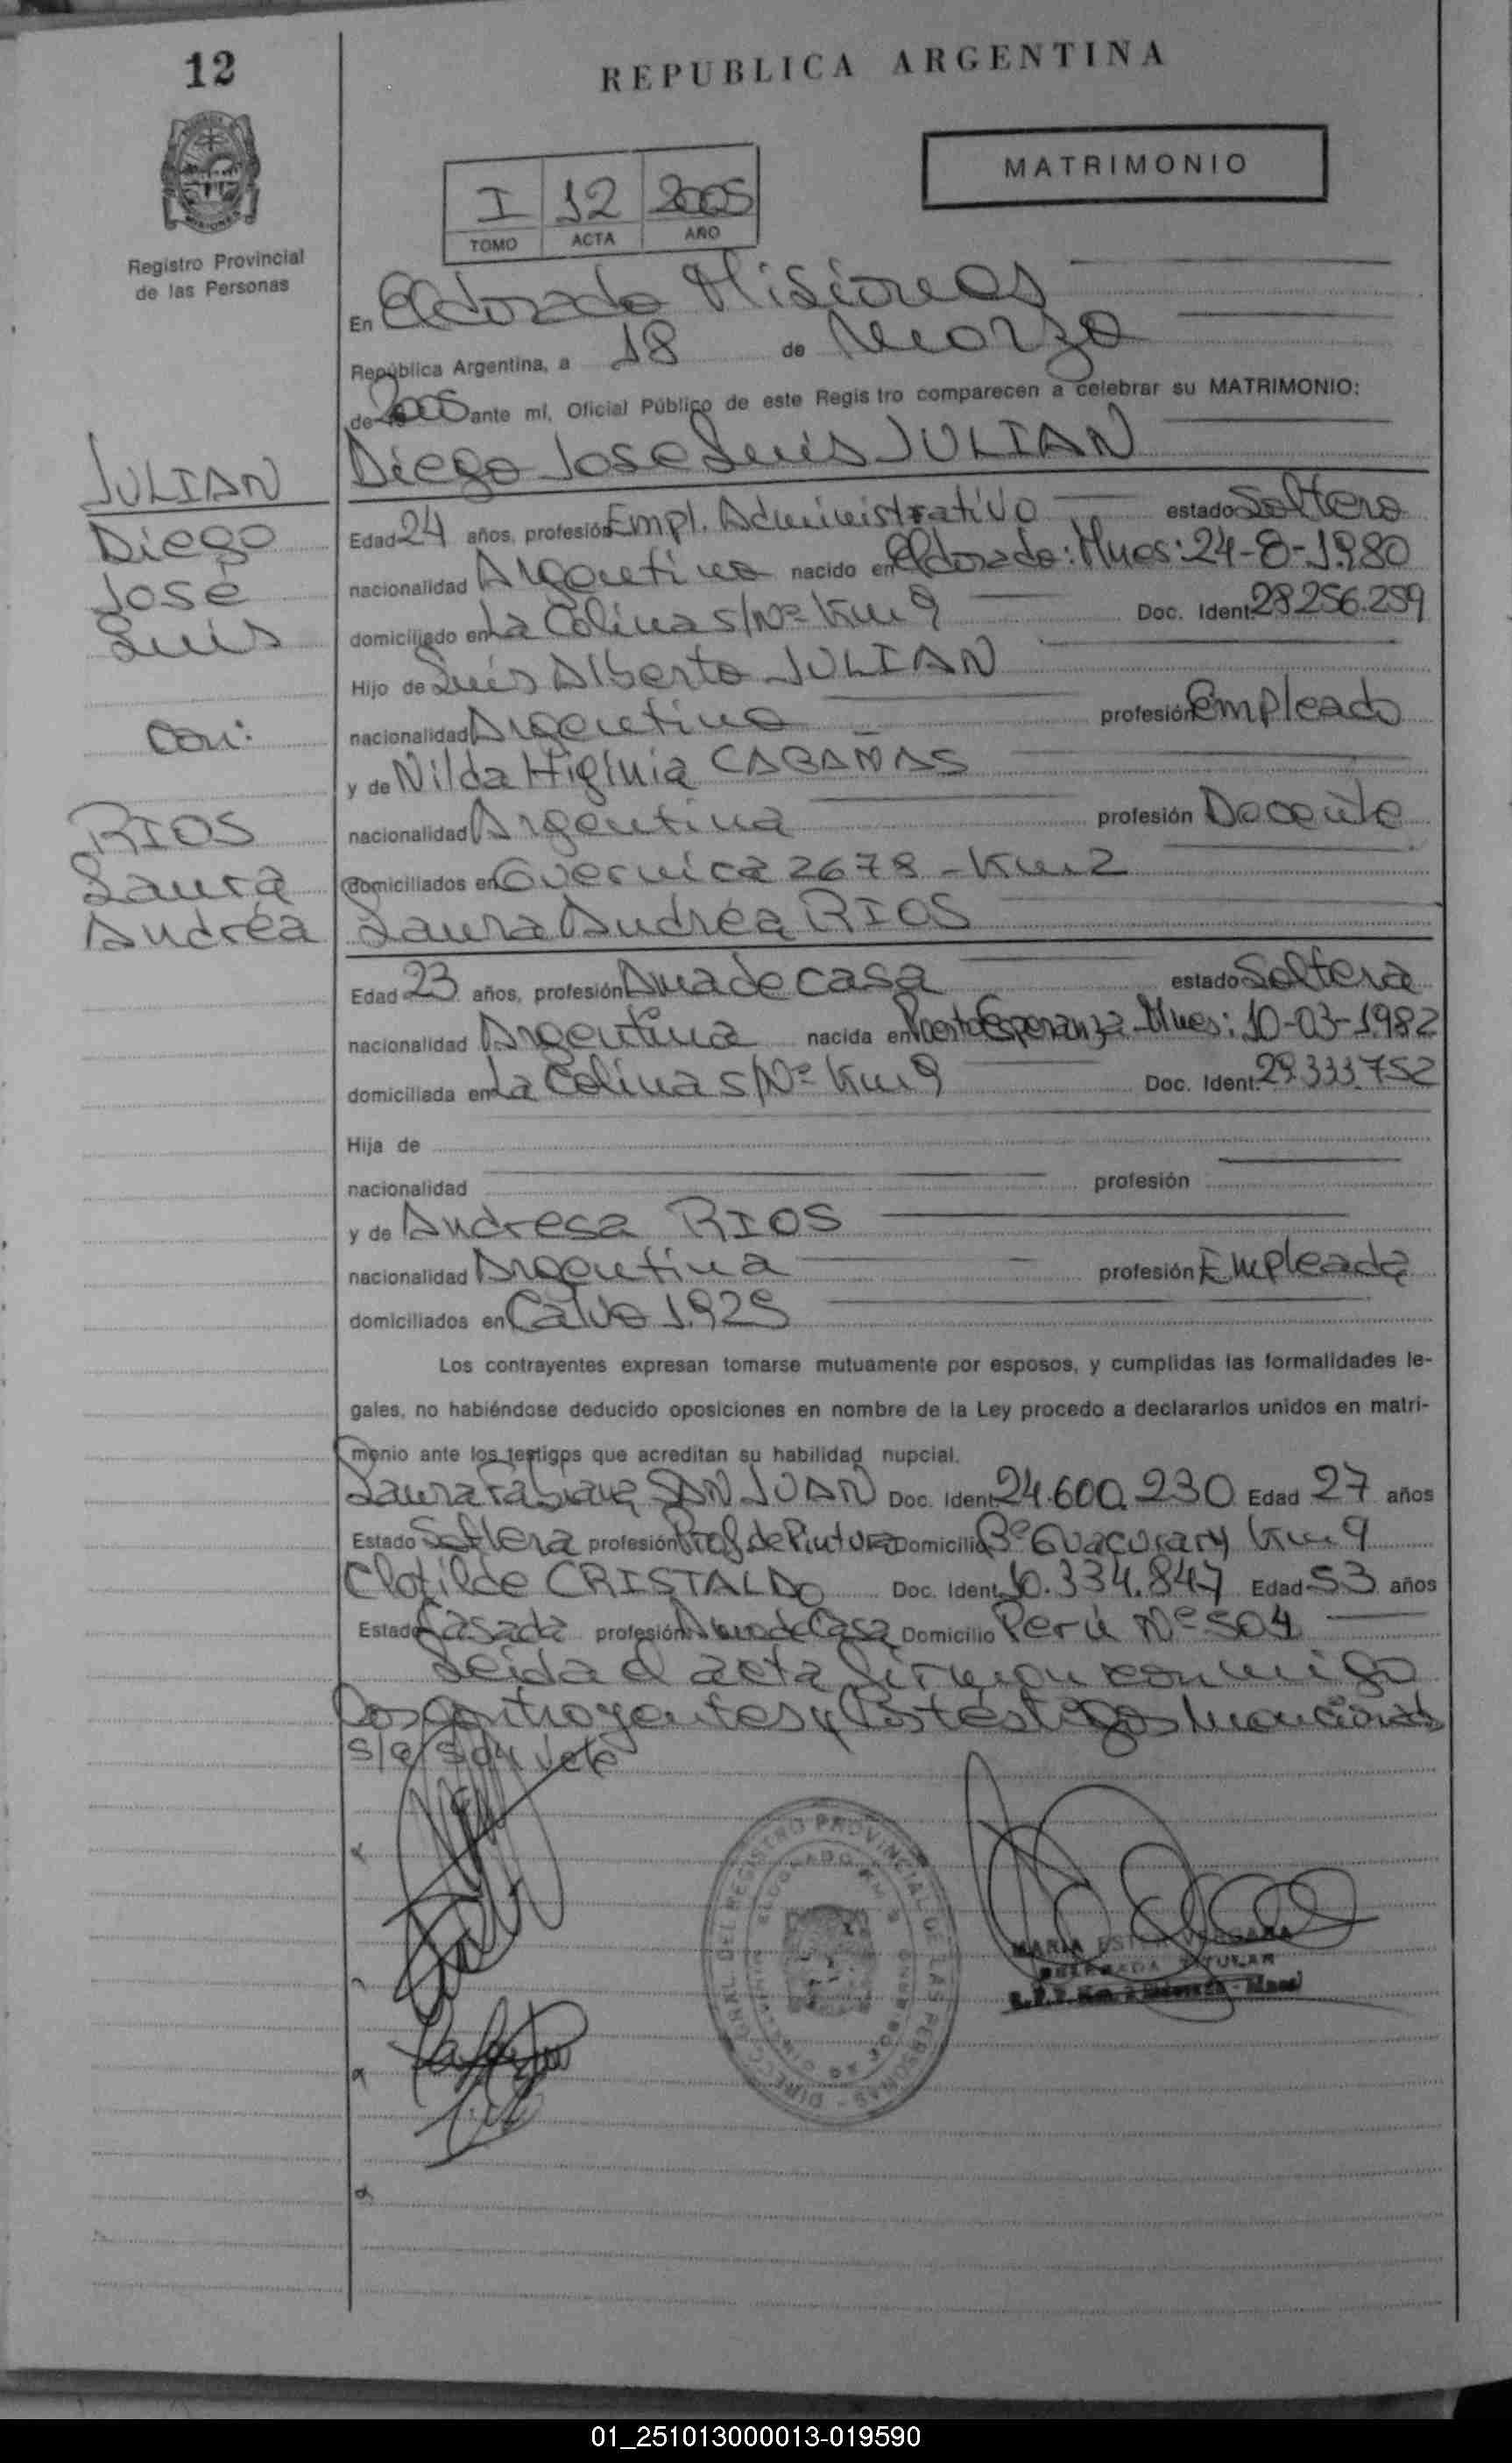 12
REPUBLICA ARGENTINA
MATRIMONIO
I 12 2005
TOMO ACTA AÑO
Registro Provincial
de las Personas
En Eldorado Misiones
República Argentina, a 18 de Marzo
de 2005 ante mí, Oficial Público de este Regis tro comparecen a celebrar su MATRIMONIO:
Diego Jose Luis JULIAN
JULIAN
Diego
José
Luis
Edad 24 años, profesión Empl. Administrativo estado Soltero
nacionalidad Argentino nacido en Eldorado: Mnes: 24-8-1.980
domiciliado en La Colina S/Nº Km 9 Doc. Ident. 28.256.259
Hijo de Luis Alberto JULIAN
nacionalidad Argentino profesión Empleado
con:
y de Nilda Higinia CABAÑAS
nacionalidad Argentina profesión Docente
domiciliados en Guernica 2678 - Km 2
RIOS
Laura
Andréa
Laura Andréa RIOS
Edad 23 años, profesión Ama de casa estado Soltera
nacionalidad Argentina nacida en Puerto Esperanza - Mnes: 10-03-1.982
domiciliada en La Colina S/Nº Km 9 Doc. Ident. 29.333.752
Hija de
nacionalidad profesión
y de Andresa RIOS
nacionalidad Argentina profesión Empleada
domiciliados en Calvo 1.925
Los contrayentes expresan tomarse mutuamente por esposos, y cumplidas las formalidades le-
gales, no habiéndose deducido oposiciones en nombre de la Ley procedo a declararlos unidos en matri-
monio ante los testigos que acreditan su habilidad nupcial.
Laura Fabiana SAN JUAN Doc. Ident. 24.600.230 Edad 27 años
Estado Soltera profesión Prof. de Pintura Domicilio Bº Guacurary Km 9
Clotilde CRISTALDO Doc. Ident. 10.334.847 Edad 53 años
Estado Casada profesión Ama de Casa Domicilio Perú Nº 504
Leida el acta firman conmigo
los contrayentes y los testigos mencionados
Vale
DIRECC. GRAL DEL REGISTRO PROVINCIAL DE LAS PERSONAS
MARIA ESTER VERGARA
DELEGADA TITULAR
01_251013000013-019590